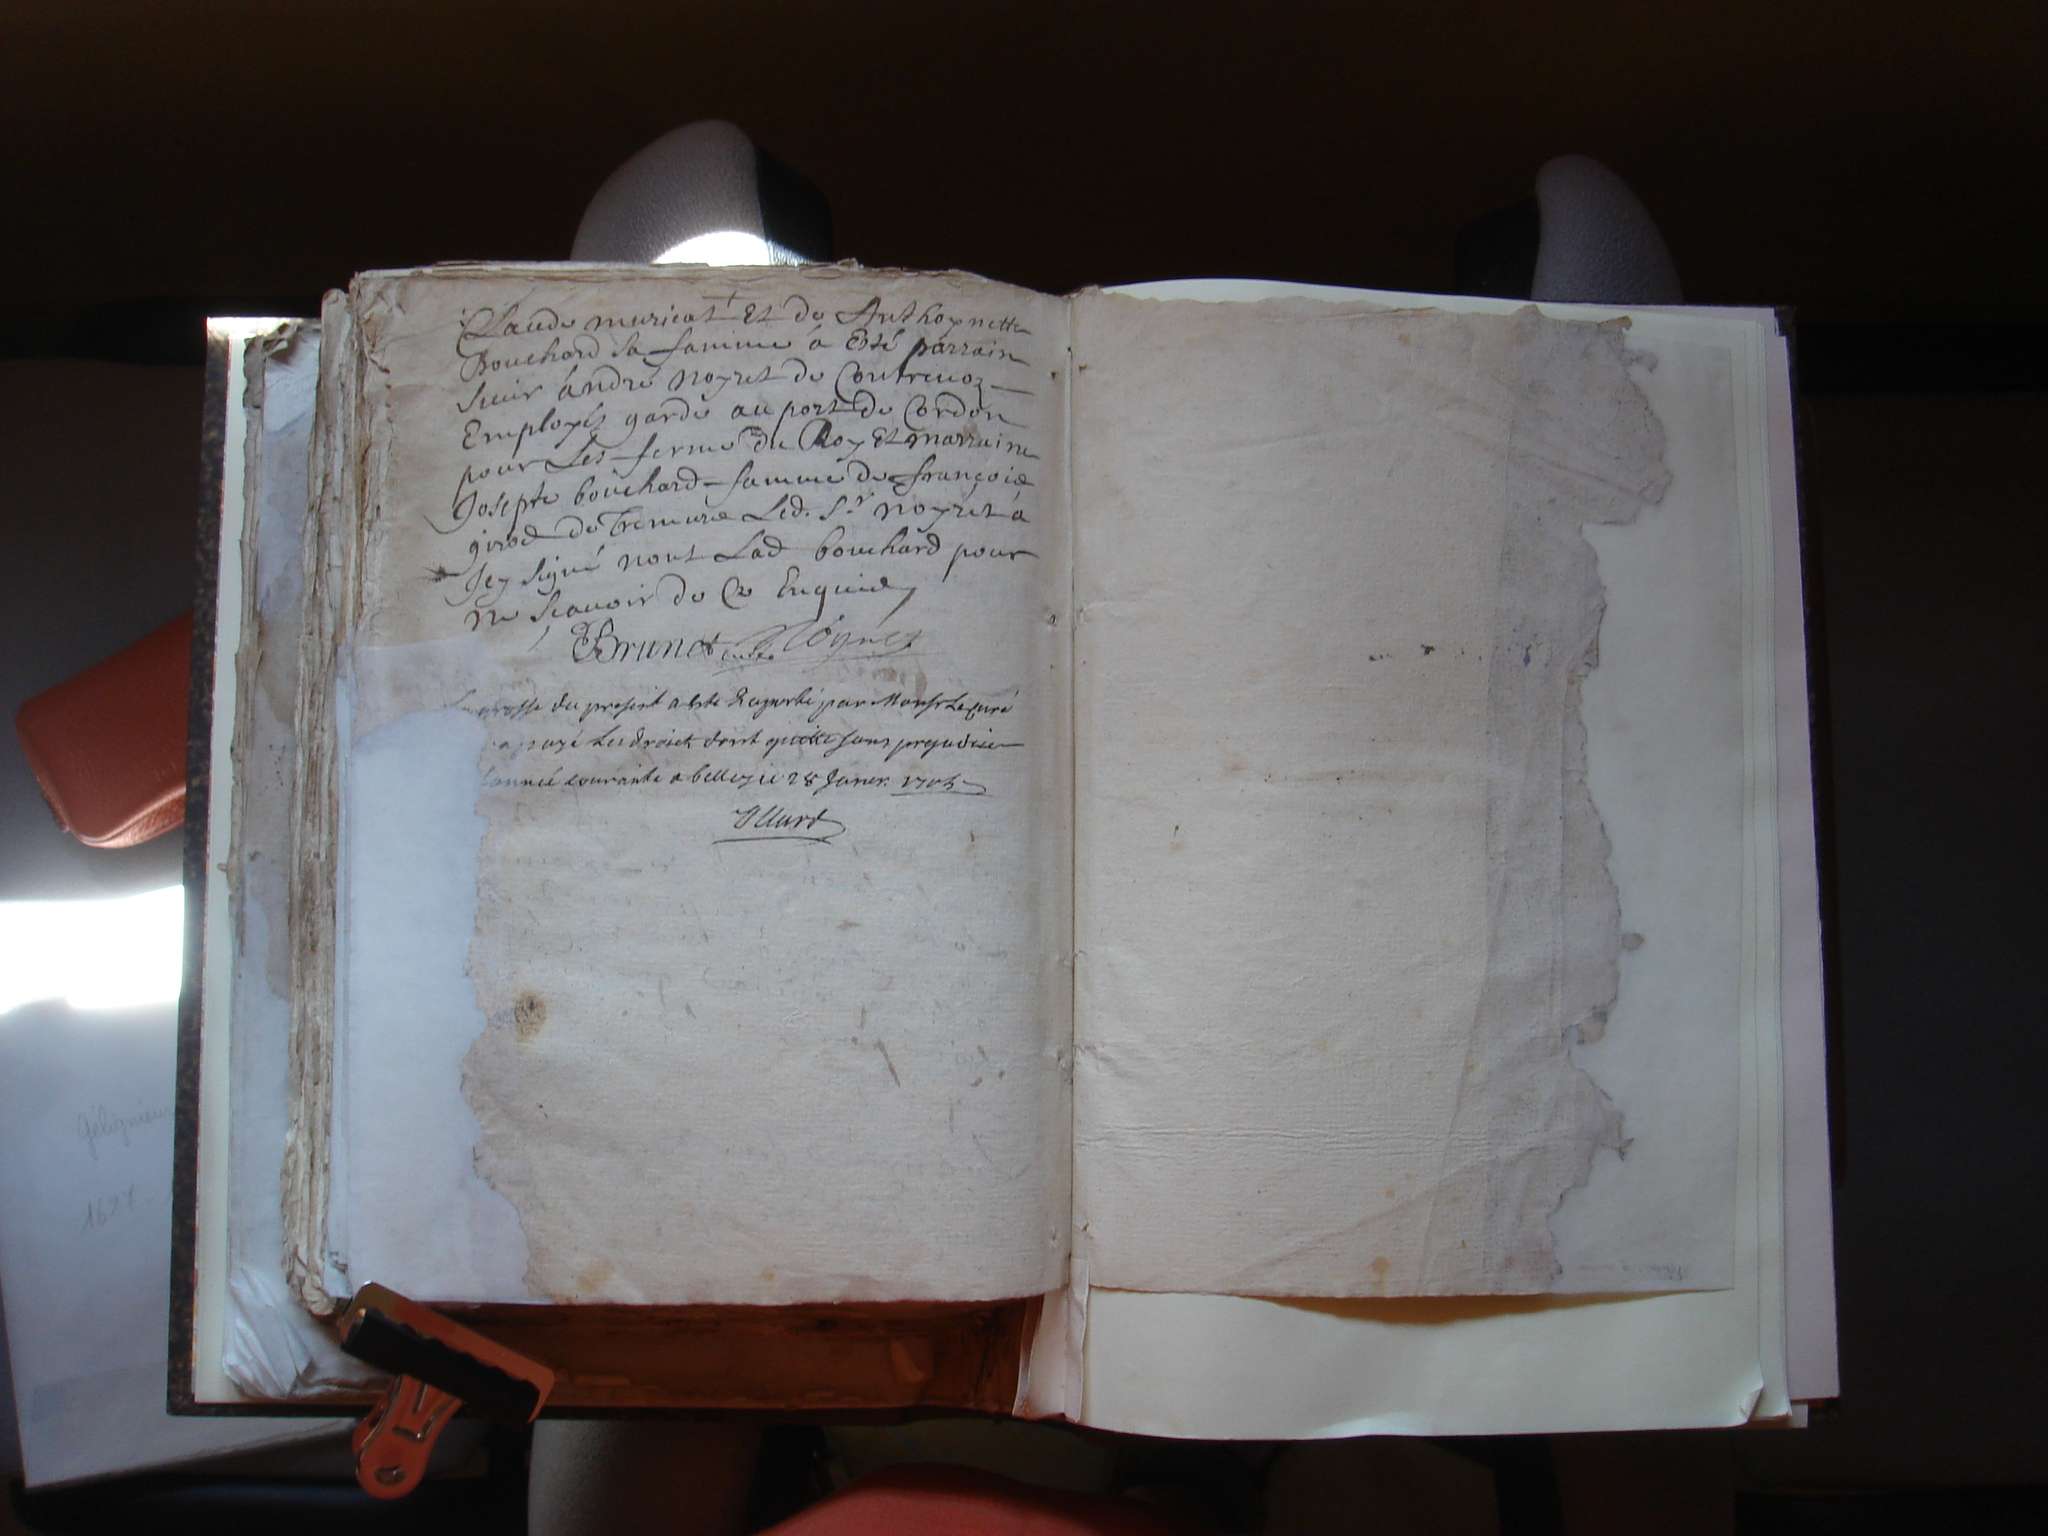 Claude muricat Et de Anthoynette
Bouchard sa famme à Esté parrain
Sieur àndré noyret de Contrevoz
Employés garde au port de Cordon
pour Les ferme du Roy Et marraine
Josepte bouchard famme de françois
girod de Tremurs Led. Sr noyret à
Icy signé nont Lad bouchard pour
ne scauoir de Ce Enquise
Brunet curé Noyret
La grosse du present a este Raporté par Monsr Le curé
a payé Les droict dont quitte sans prejudice
lannée courante a belley ie 28 Janer. 1705
Gélignieux
1697